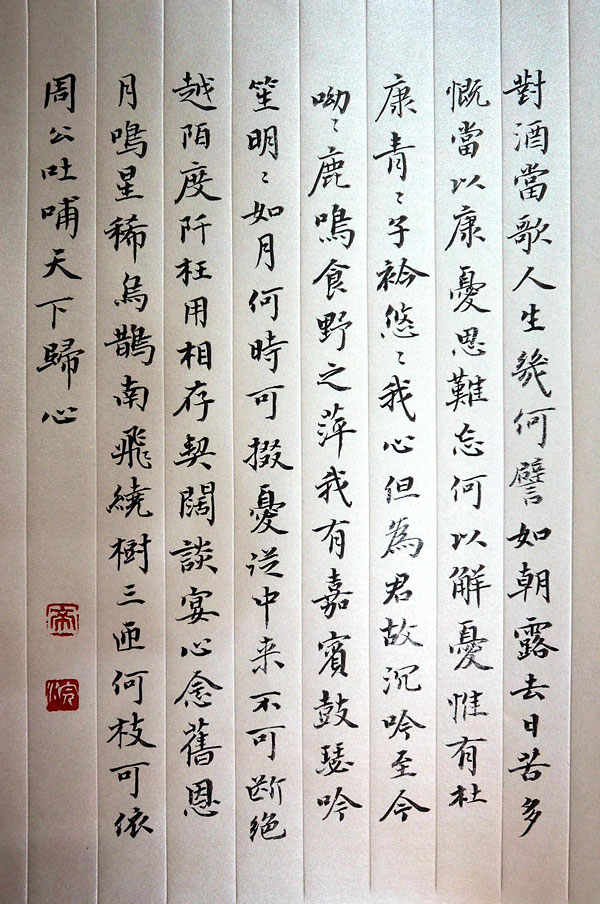 對酒當歌人生幾何譬如朝露去日苦多
慨當以康憂思難忘何以解憂惟有杜
康青〻子衿悠〻我心但為君故沉吟至今
呦〻鹿鳴食野之萍我有嘉賓鼓瑟吟
笙明〻如月何時可掇憂從中来不可断绝
越陌度阡枉用相存契闊談宴心念舊恩
月鳴星稀烏鵲南飛繞樹三匝何枝可依
周公吐哺天下歸心